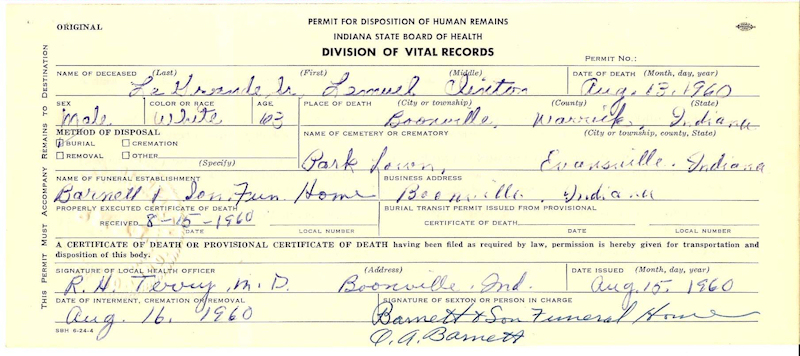 ORIGINAL
PERMIT FOR DISPOSITION OF HUMAN REMAINS
INDIANA STATE BOARD OF HEALTH
DIVISION OF VITAL RECORDS
PERMIT NO.:
THIS PERMIT MUST ACCOMPANY REMAINS TO DESTINATION
NAME OF DECEASED (Last) (First) (Middle) DATE OF DEATH (Month, day, year)
Sr. Lemuel Clinton Aug. 13, 1960
SEX COLOR OR RACE AGE PLACE OF DEATH (City or township) (County) (State)
Male White 63 Boonville, Warrick, Indiana
METHOD OF DISPOSAL NAME OF CEMETERY OR CREMATORY (City or township, county, State)
BURIAL CREMATION
REMOVAL OTHER
(Specify)
Park Lawn, Evansville, Indiana
NAME OF FUNERAL ESTABLISHMENT BUSINESS ADDRESS
Barnett & Son Fun. Home Boonville, Indiana
PROPERLY EXECUTED CERTIFICATE OF DEATH BURIAL TRANSIT PERMIT ISSUED FROM PROVISIONAL
RECEIVED 8-15-1960 CERTIFICATE OF DEATH
DATE LOCAL NUMBER DATE LOCAL NUMBER
A CERTIFICATE OF DEATH OR PROVISIONAL CERTIFICATE OF DEATH having been filed as required by law, permission is hereby given for transportation and
disposition of this body.
SIGNATURE OF LOCAL HEALTH OFFICER (Address) DATE ISSUED (Month, day, year)
R. H. Terry, M.D. Boonville, Ind. Aug. 15, 1960
DATE OF INTERMENT, CREMATION OR REMOVAL SIGNATURE OF SEXTON OR PERSON IN CHARGE
Aug. 16, 1960 Barnett & Son Funeral Home
O. A. Barnett
SBH 6-24-4